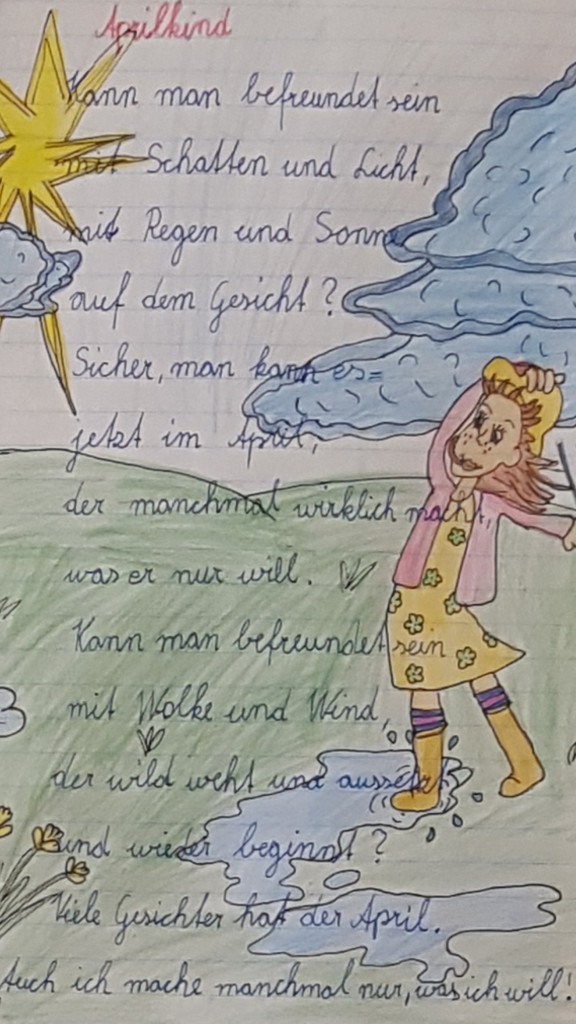 Aprilkind
Kann man befreundet sein
mit Schatten und Licht,
mit Regen und Sonne
auf dem Gesicht?
Sicher, man kann es=
jetzt im April,
der manchmal wirklich macht,
was er nur will.
Kann man befreundet sein
mit Wolke und Wind,
der wild weht und aussetzt
und wieder beginnt?
Viele Gesichter hat der April.
Auch ich mache manchmal nur, was ich will!